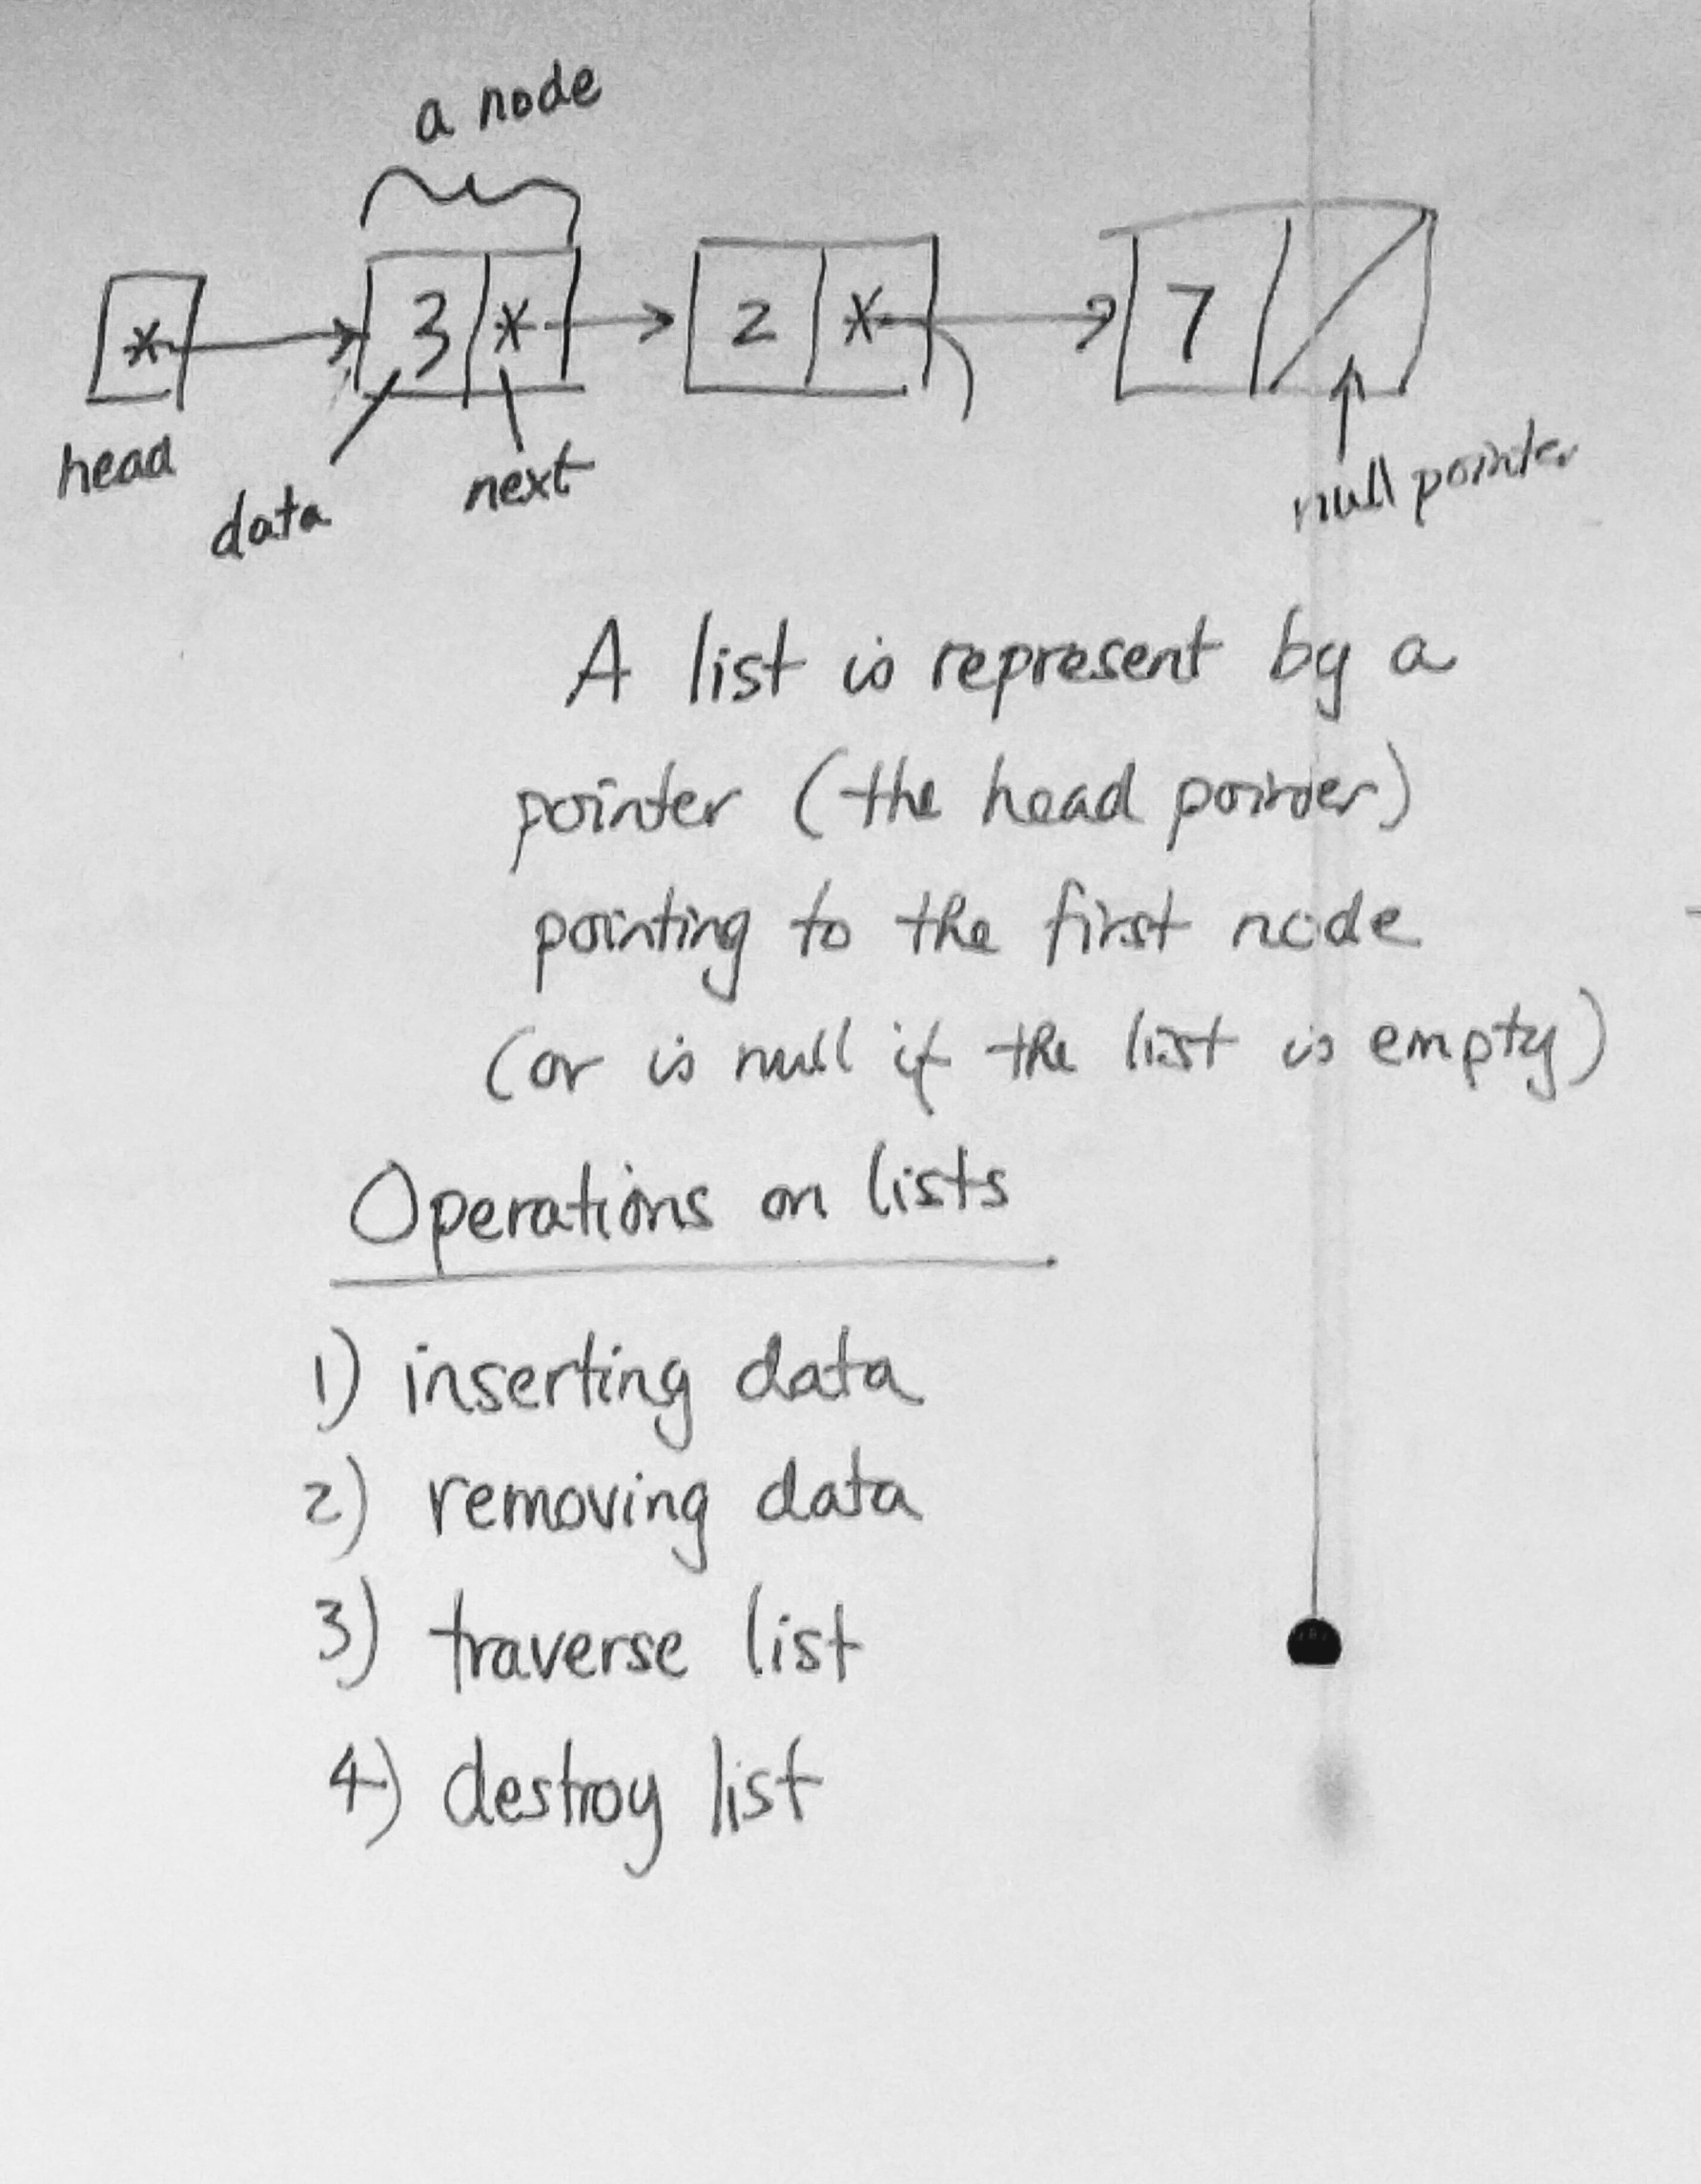 a node
* 3 * 2 * 7
head
data
next
null pointer
A list is represent by a
pointer (the head pointer)
pointing to the first node
(or is null if the list is empty)
Operations on lists
1) inserting data
2) removing data
3) traverse list
4) destroy list